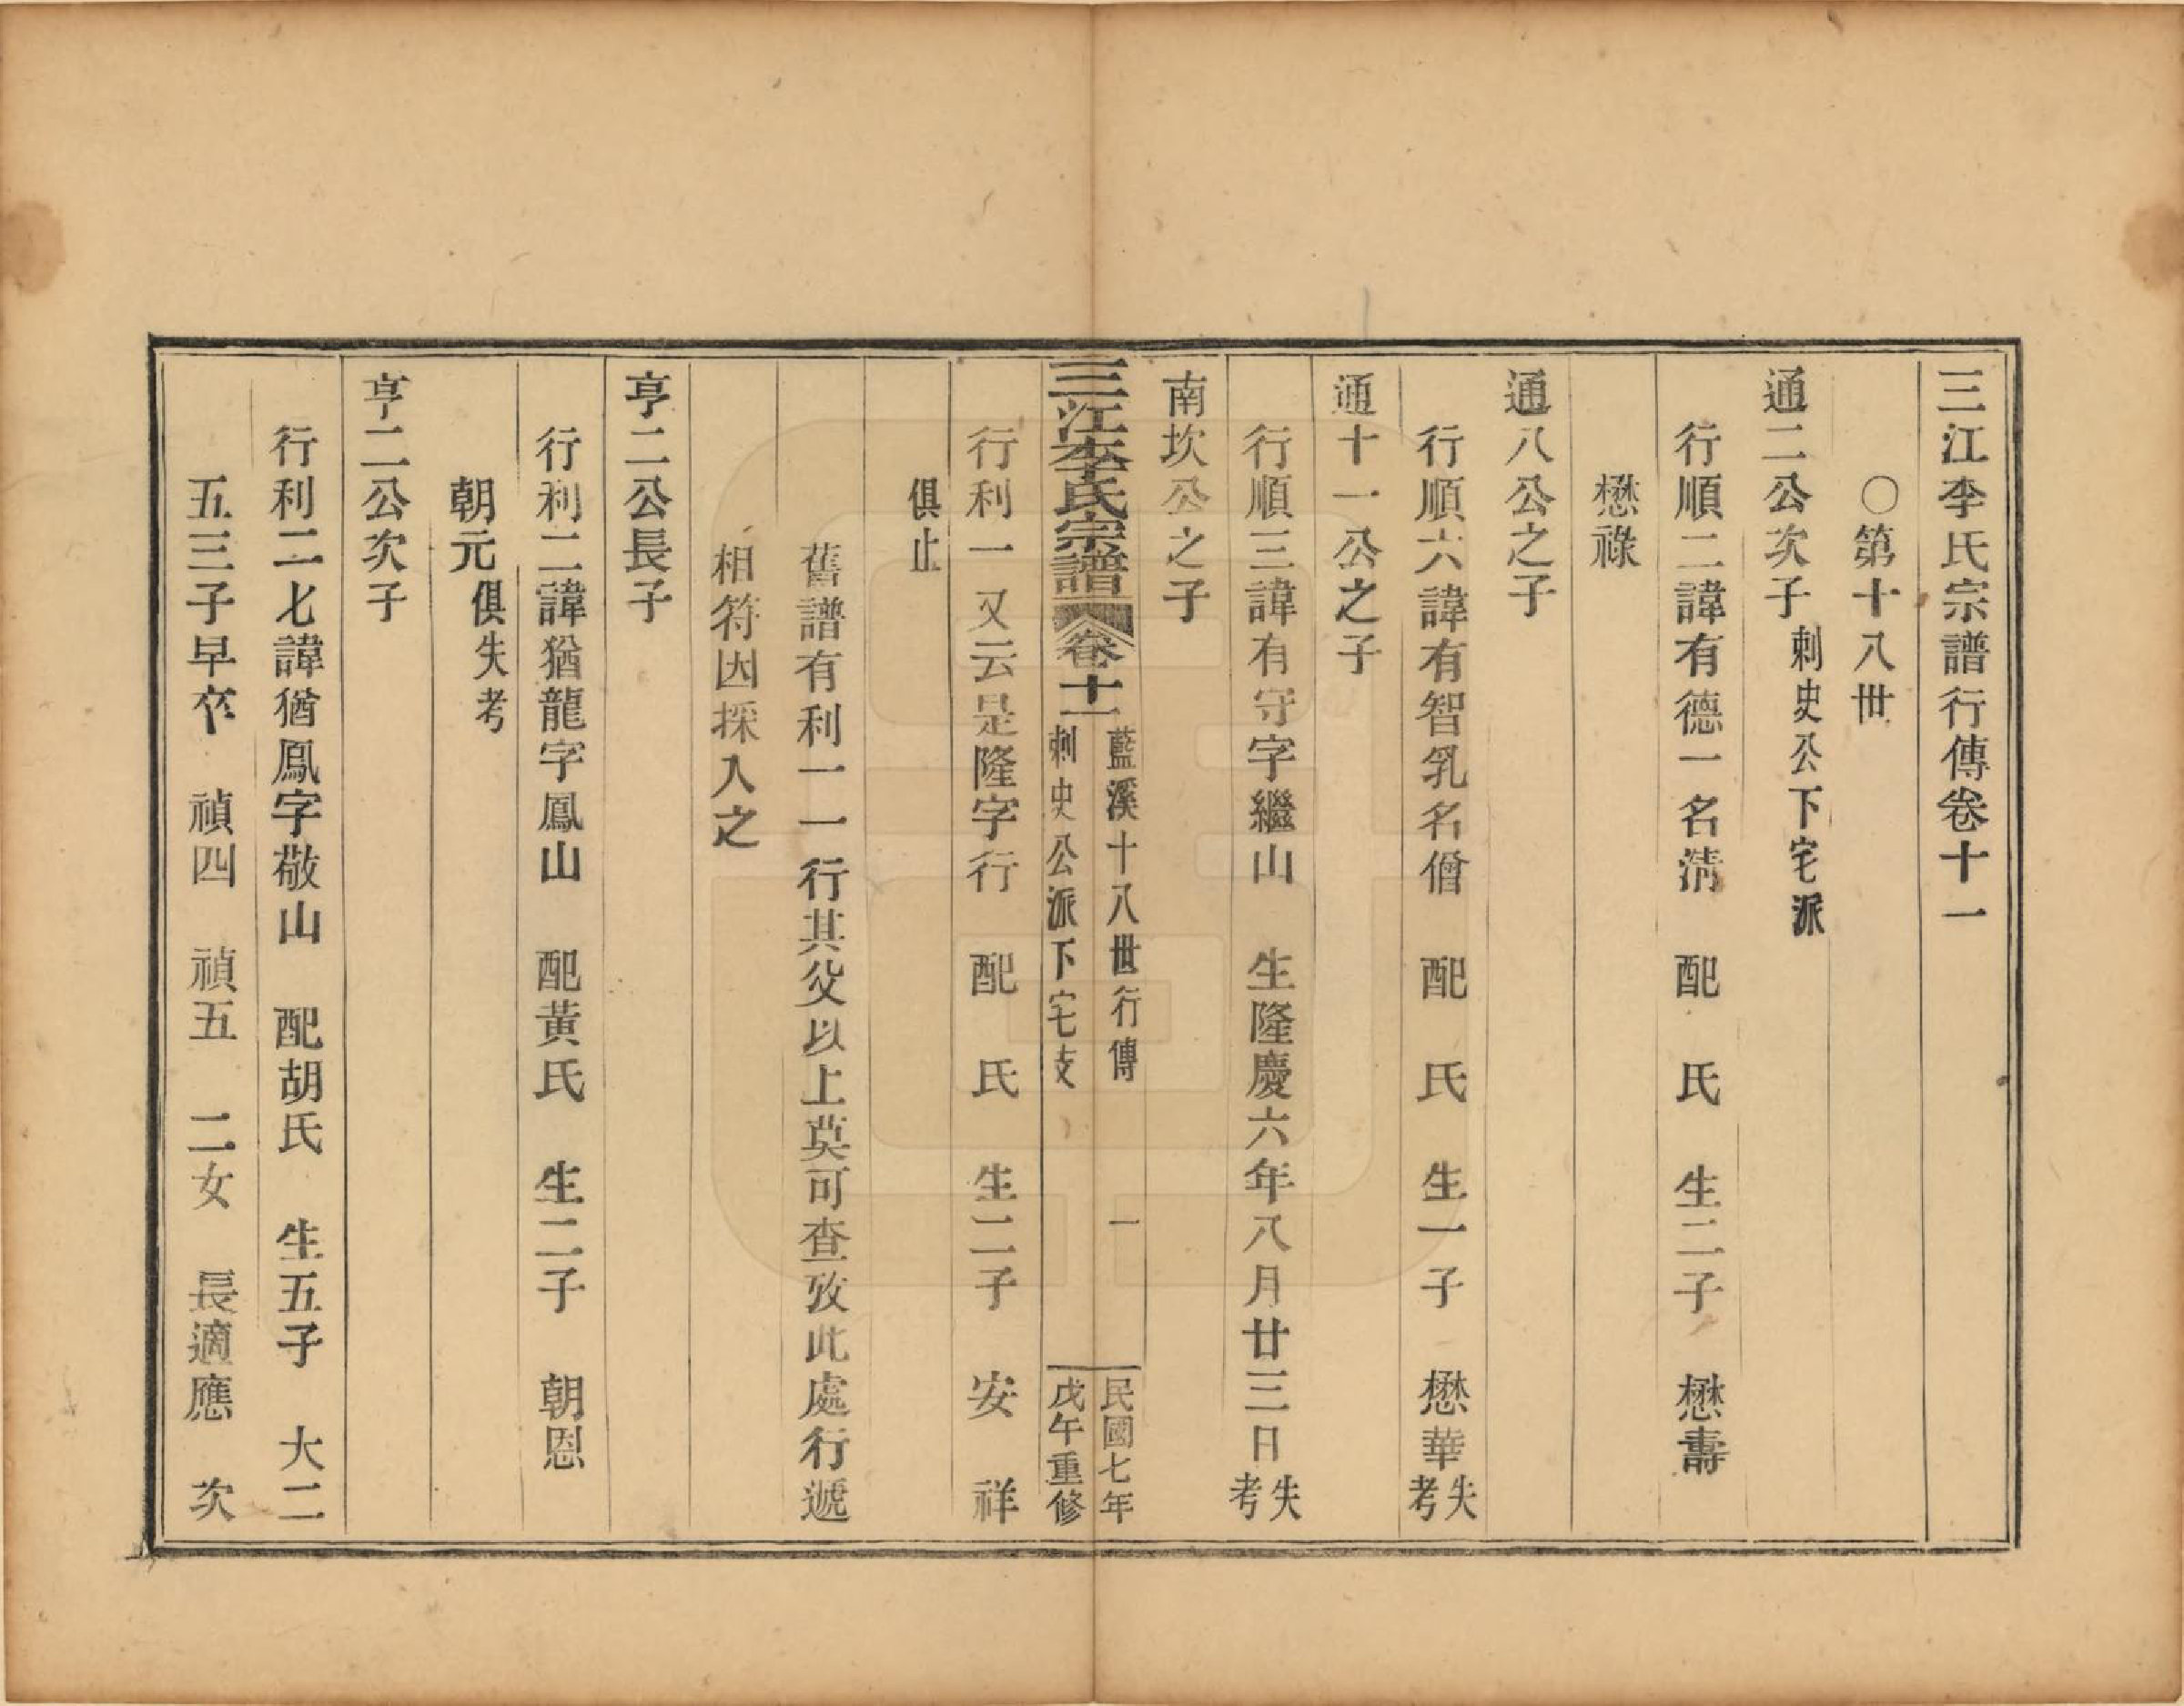 三江李氏宗譜行傳卷十一
〇第十八世
通二公次子刺史公下宅派
行順二諱有德一名淸　配　氏　生二子　懋壽
懋祿
通八公之子
行順六諱有智乳名僧　配　氏　生一子　懋華失考
通十一公之子
行順三諱有守字繼山　生隆慶六年八月廿三日失考
南坎公之子
三江李氏宗譜　卷十一　藍溪十八世行傳　刺史公派下宅支　一　民國七年　戊午重修
行利一又云是隆字行　配　氏　生二子　安　祥
俱止
舊譜有利一一行其父以上莫可查攷此處行遞
相符因採入之
亨二公長子
行利二諱猶龍字鳳山　配黃氏　生二子　朝恩
朝元俱失考
亨二公次子
行利二七諱猶鳳字敬山　配胡氏　生五子　大二
五三子早卒　禎四　禎五　二女　長適應　次